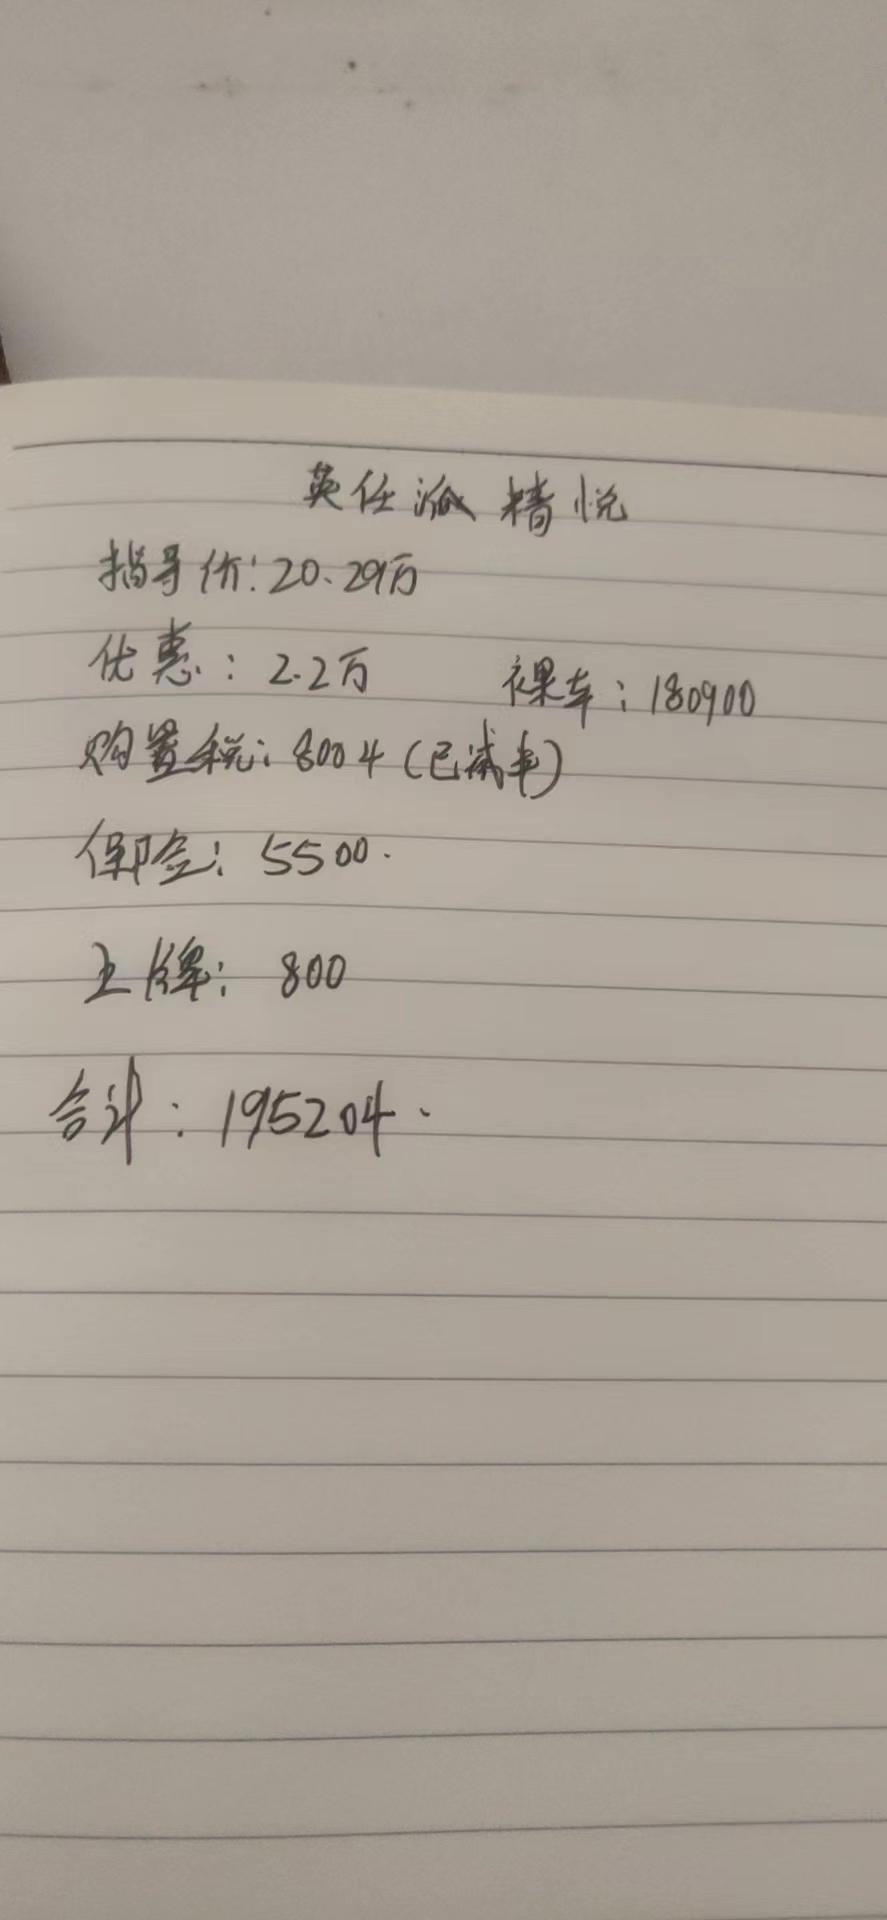 英仕派 精悦
指导价:20.29万
优惠:2.2万 裸车:180900
购置税:8004(已减半)
保险:5500.
上牌:800
合计:195204.